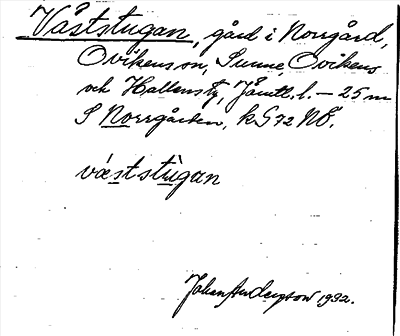 Våststugan, gård i Norrgård,
Ovikens sn, Sunne, Ovikens
och Hallens tg, Jämtl. l. — 25 m
S Norrgården, k G 72 NÖ.
våststùgan
Johan Anderzson 1932.